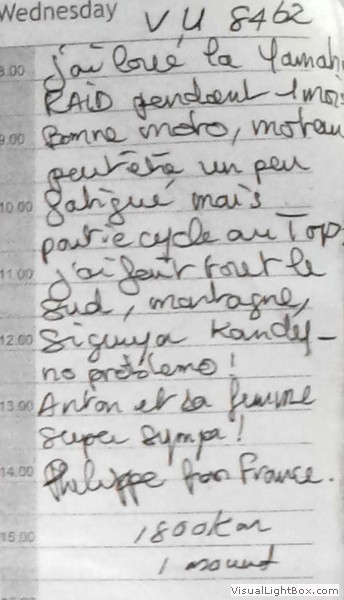 Wednesday
VU 8462
8.00
j'ai loué la Yamah
RAID pendant 1 mois
9.00
Bonne moto, moteu
peut être un peu
10.00
fatigué, mais
partie cycle au Top.
11.00
j'ai fait tout le
Sud, montagne,
12.00
Siguiya Kandy -
no problemo !
13.00
Anton et sa femme
super sympa !
14.00
Philippe from France.
15.00
1800 km
1 mount
VisualLightBox.com